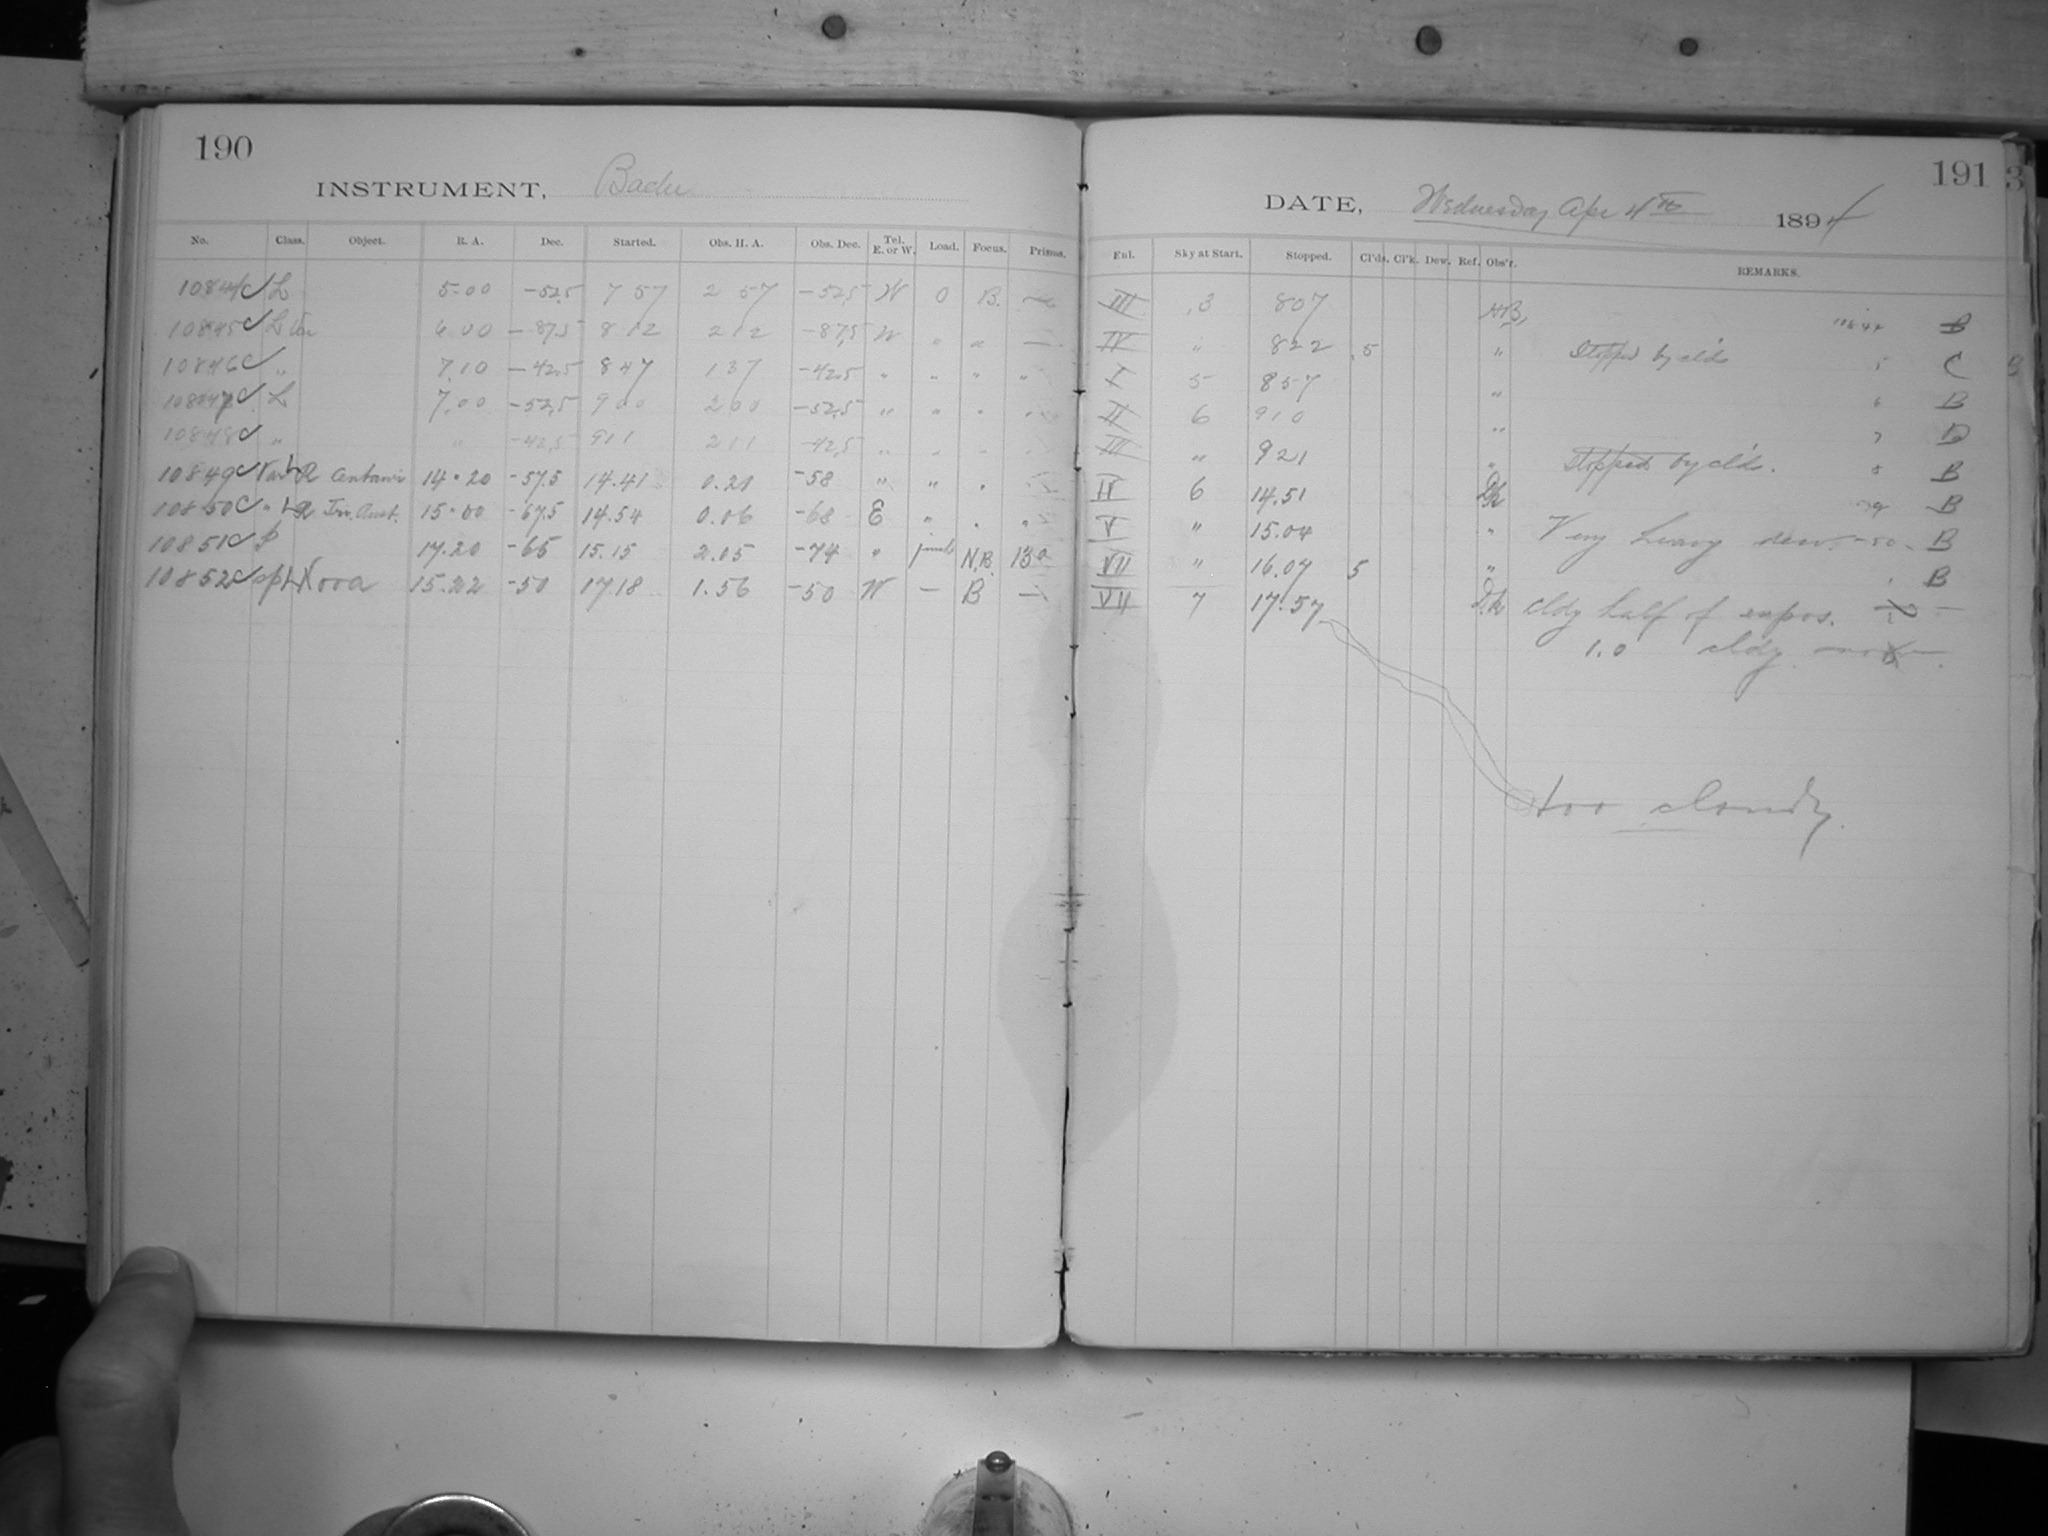 190
INSTRUMENT, Bache
No. Class. Object. R. A. Dec. Started. Obs. H. A. Obs. Dec. Tel. E. or W. Load. Focus. Prisms.
10844 C L 5.00 -52.5 7 57 2 57 -52.5 W 0 B. —
10845 C L Var 6.00 -87.5 8 12 2 12 -87.5 W " " —
10846 C " 7.10 -42.5 8 47 1 37 -42.5 " " " "
10847 C L 7.00 -52.5 9 00 2 00 -52.5 " " " "
10848 C " " -42.5 9 11 2 11 -42.5 " " " "
10849 C Var L R Centauri 14.20 -57.5 14.41 0.21 -58 " " "
10850 C " L R Tri. Aust. 15.00 -67.5 14.54 0.06 -68 E " " "
10851 C p 17.20 -65 15.15 2.05 -74 " N.B. 13a
10852 C sp L Nova 15.22 -50 17.18 1.56 -50 W — B —
191
DATE, Wednesday Apr 4th 1894
Enl. Sky at Start. Stopped. Cl'ds. Cl'k. Dew. Ref. Obs'r. REMARKS.
III .3 807 B
IV " 822 .5 " Stopped by clds C
I 5 857 " B
II 6 910 " D
III " 921 " Stopped by clds. B
II 6 14.51 B
V " 15.04 " Very heavy dew. -50- B
VII " 16.07 5 " B
VII 7 17.57 cldy half of expos.
1.0 cldy
too cloudy